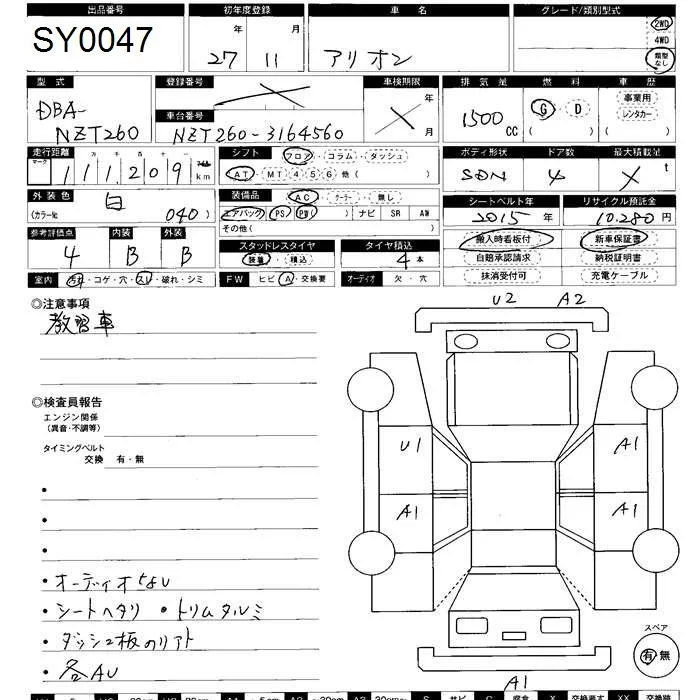 出品番号 初年度登録 車名 グレード/類別型式
SY0047 27年 11月 アリオン 2WD
4WD
類型なし
型式 登録番号 車検期限 排気量 燃料 車歴
DBA- 年 事業用
NZT260 車台番号 月 1500cc G・D レンタカー
NZT260-3164560 ( ) ( )
走行距離 シフト フロア・コラム・ダッシュ ボディ形状 ドア数 最大積載量
マーク 十 万 千 百 十 一
111,209km AT・MT 4 5 6 他( ) SDN 4 t
外装色 装備品 AC・クーラー・無し シートベルト年 リサイクル預託金
白 エアバック・PS・PW( )ナビ SR AW 2015年 10,280円
(カラーNo 040) その他( )
参考評価点 内装 外装 スタッドレスタイヤ タイヤ積込 搬入時看板付 新車保証書
4 B B 装着・積込 4本 自賠承認請求 納税証明書
室内 汚れ・コゲ・穴・スレ・破れ・シミ FW ヒビ・A・交換要 オーディオ 欠・穴 抹消受付可 充電ケーブル
◎注意事項 U2 A2
教習車
◎検査員報告
エンジン関係
(異音・不調等)
タイミングベルト U1 A1
交換 有・無
A1 A1
・オーディオちょい
・シートヘタリ ・トリムタルミ
・ダッシュ板のリアト スペア
・各AU 有 無
A1